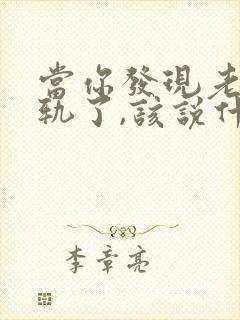 當你發現老
軌了,該說什
李章亮